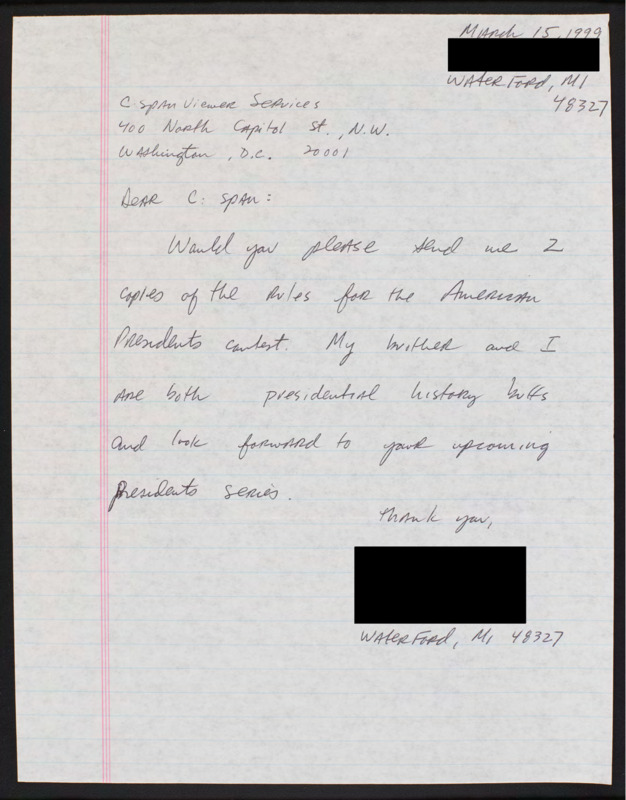 March 15, 1999
Waterford, MI
48327
C-Span Viewer Services
400 North Capitol St., N.W.
Washington, D.C. 20001
Dear C-Span:
Would you please send me 2
copies of the rules for the American
Presidents contest. My brother and I
are both presidential history buffs
and look forward to your upcoming
presidents series.
Thank you,
Waterford, MI 48327